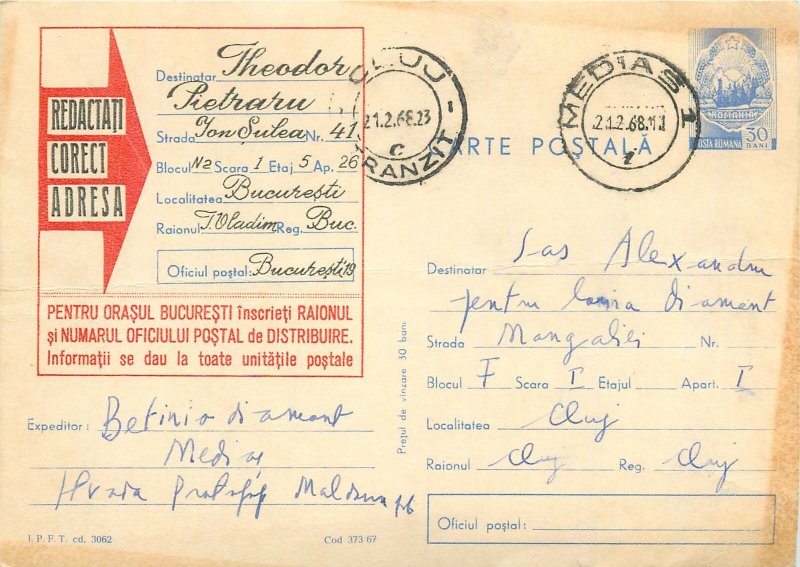 REDACTAȚI
CORECT
ADRESA
Destinatar Theodor
Pietraru
Strada Ion Șulea Nr. 41
Blocul N2 Scara 1 Etaj 5 Ap. 26
Localitatea București
Raionul T. Vladim Reg. Buc.
Oficiul poștal: București 19
PENTRU ORAȘUL BUCUREȘTI înscrieți RAIONUL
și NUMARUL OFICIULUI POȘTAL de DISTRIBUIRE.
Informații se dau la toate unitățile poștale
CLUJ
21.2.68.23
C
TRANZIT
MEDIAS 1
21.2.68.
1
ROMANIA
POSTA ROMANA 30 BANI
CARTE POȘTALĂ
Destinatar Sas Alexandru
pentru diamant
Strada Nr.
Blocul F Scara I Etajul Apart. I
Localitatea Cluj
Raionul Cluj Reg. Cluj
Oficiul poștal:
Prețul de vînzare 30 bani
Expeditor: diamant
Mediaș
I. P. F. T. cd. 3062
Cod 373 67